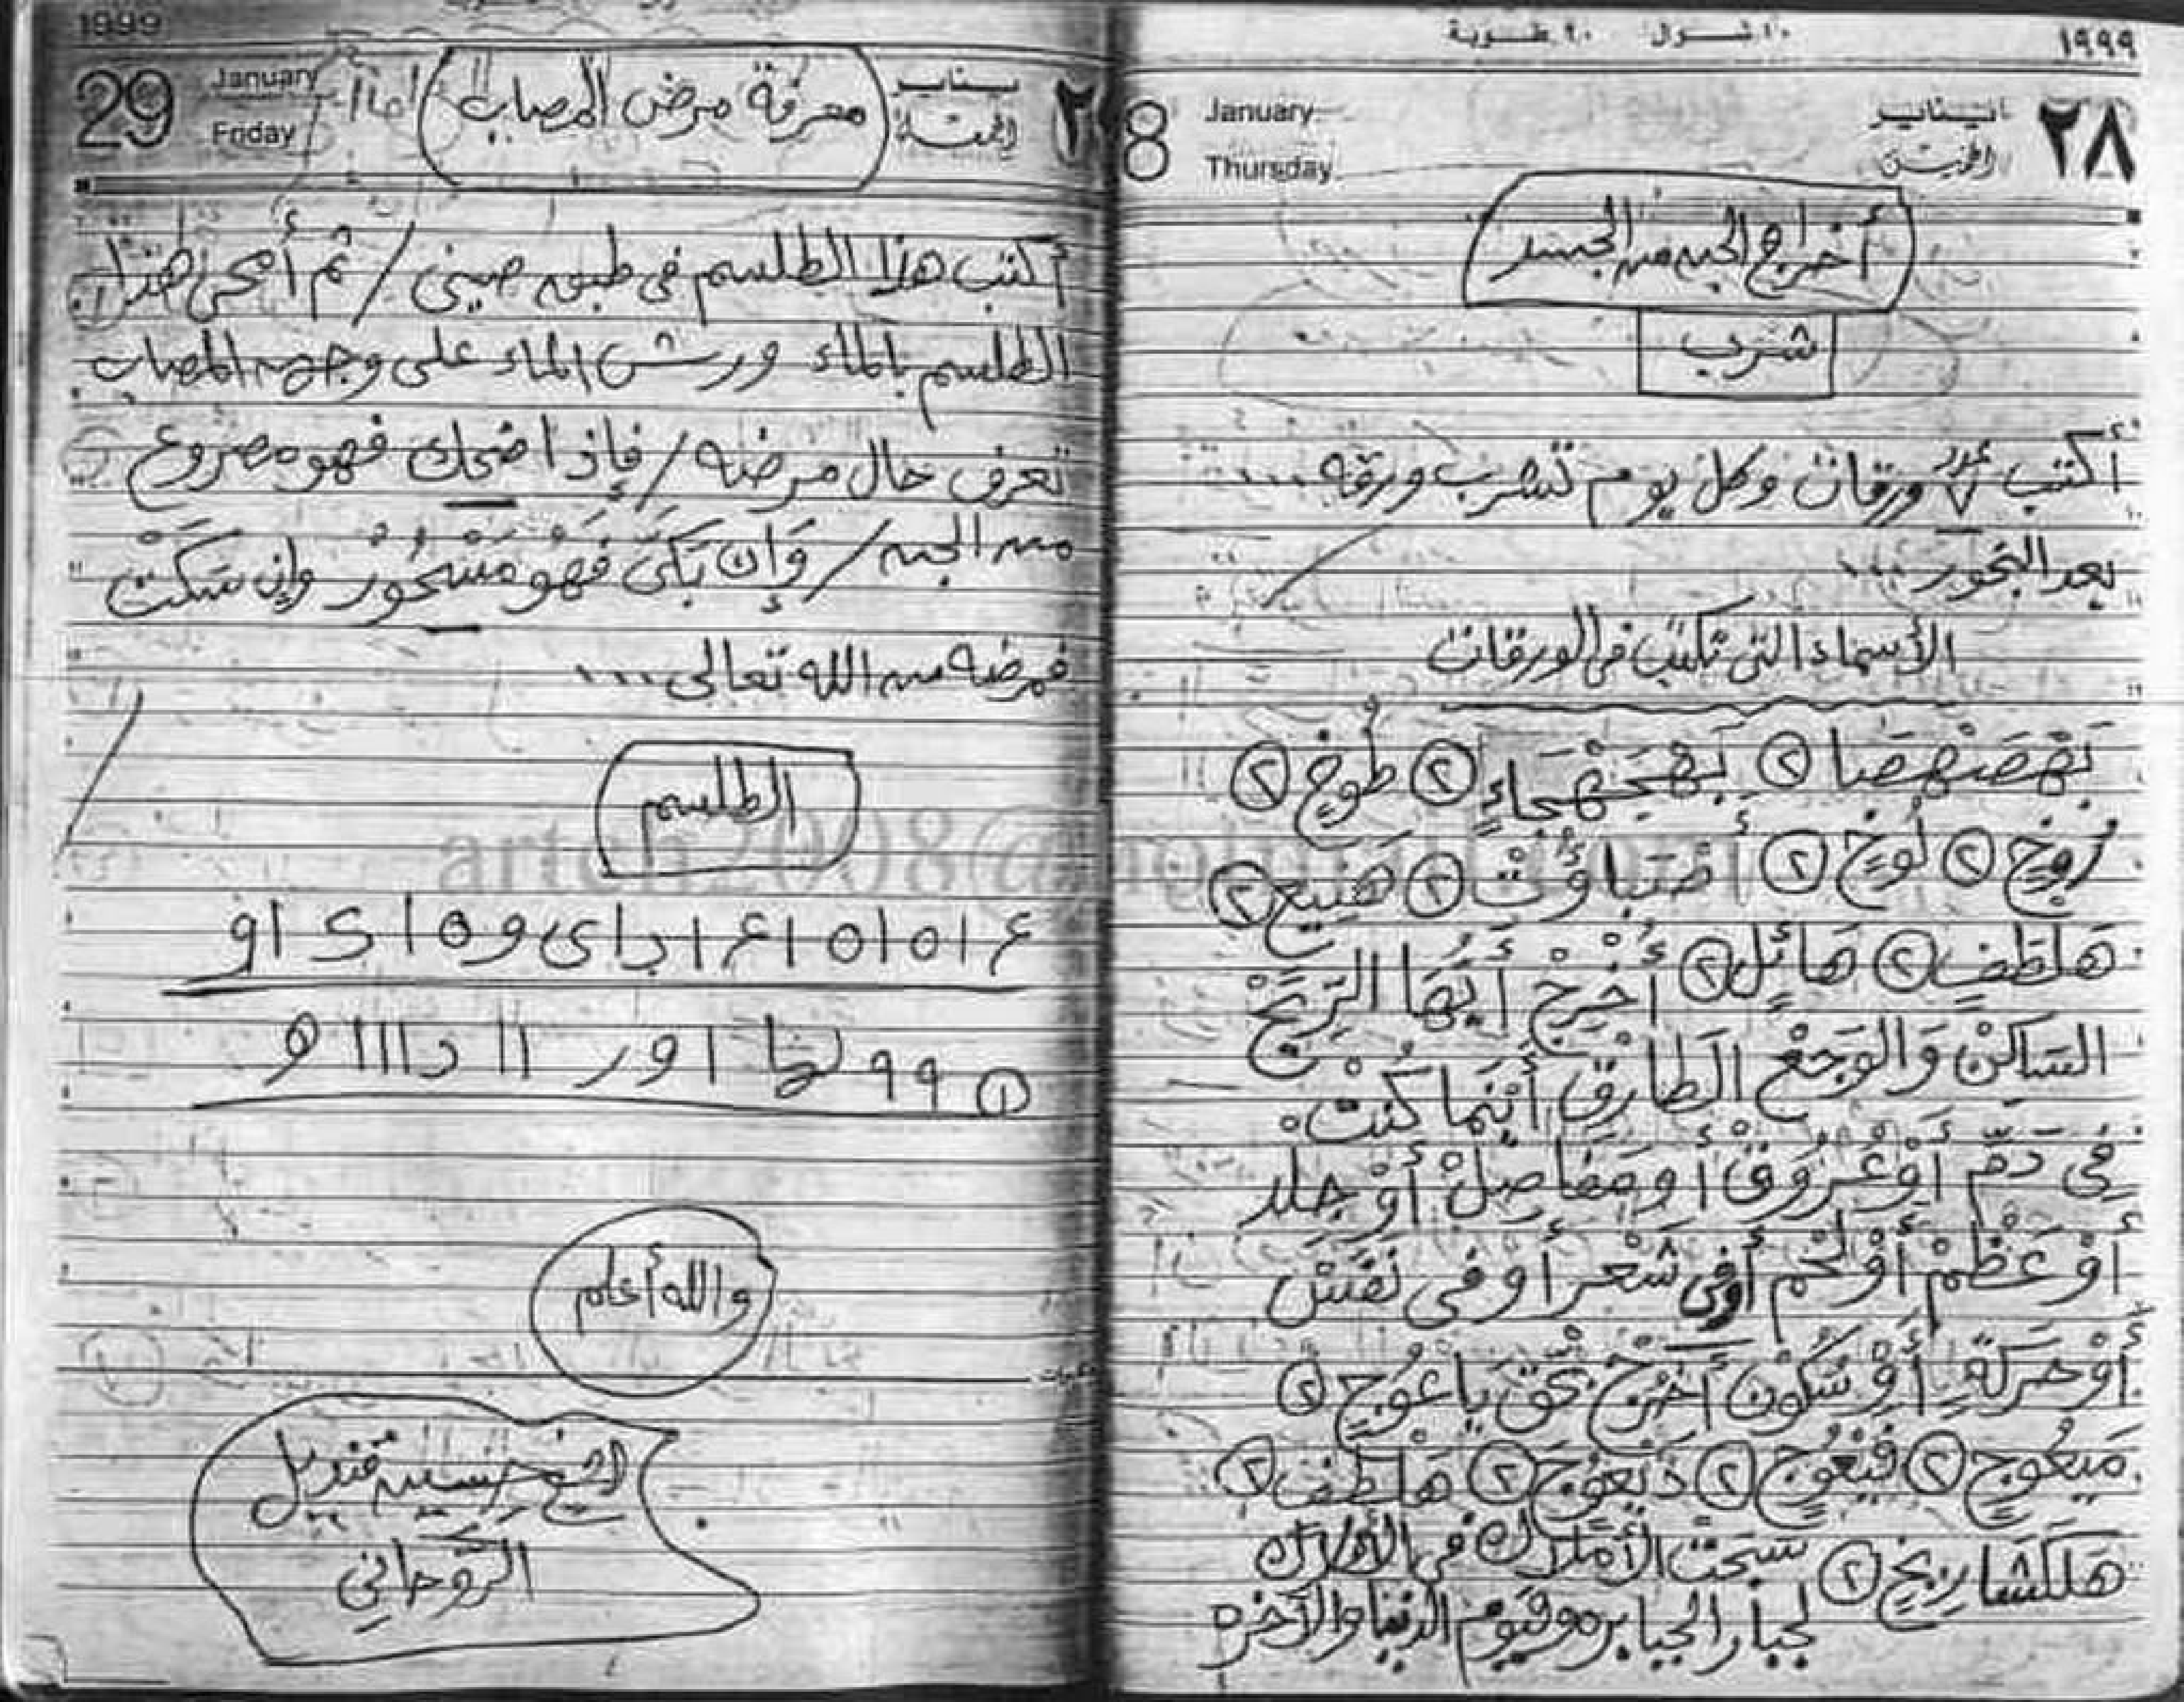 ١٩٩٩ ١٠ شوال ٢٠ طوبة
٢٨ يناير January
الخميس Thursday 8
أخراج الجن من الجسد
شرب
أكتب عدد ٧ ورقات وكل يوم تشرب ورقه ...
بعد البخور ...
الأسماء التى تكتب فى الورقات
بَهْصَنْهَصَا ٢ بَهْجَهْجَاءٍ ٢ طُوخٍ ٢
زُوخٍ ٢ لُوخٍ ٢ أَصْبَاؤُتْ ٢ هَنِيعٍ ٢
هَلَطَفٍ ٢ هَائِلٍ ٢ أُخْرِجْ أَيُّهَا الرِّيحْ
السَاكِنْ وَالوَجَعْ الطَارِقْ أَيْنَمَا كُنْتْ
فِى دَمّ أَوْ عُرُوقْ أو مَفَاصِلْ أَوْ جِلد
أَوْ عَظْمْ أَوْ لَحْم أوفى شَعْر أَوفى نَفَسْ
أَوْ حَرَكَةٍ أَوْ سُكُونْ أَخْرُجْ بِحَقِ يَا عُوجٍ ٢
مَيْعُوجٍ ٢ فَيْعُوجٍ ٢ دَيْعُوجٍ ٢ هَلْطَفٍ ٢
هَلَكْشَارِيخٍ ٢ سَبَحَتْ الأَملاك فى الأفلاك
لجبار الجبابره وقيوم الدنيا والآخره
1999
29 January يناير
Friday الجمعة
معرفة مرض المصاب
أكتب هذا الطلسم فى طبق صينى / ثم أمحى هذا
الطلسم بالماء ورش الماء على وجه المصاب
تعرف حال مرضه / فإذا ضحك فهو مصروع
من الجن / وَإِن بَكَىَ فَهُوَ مَسْحُورْ وإن سَكَتْ
فمرضه من الله تعالى ...
الطلسم
artch2008@
والله أعلم
الشيخ حسين قنديل
الروحاني